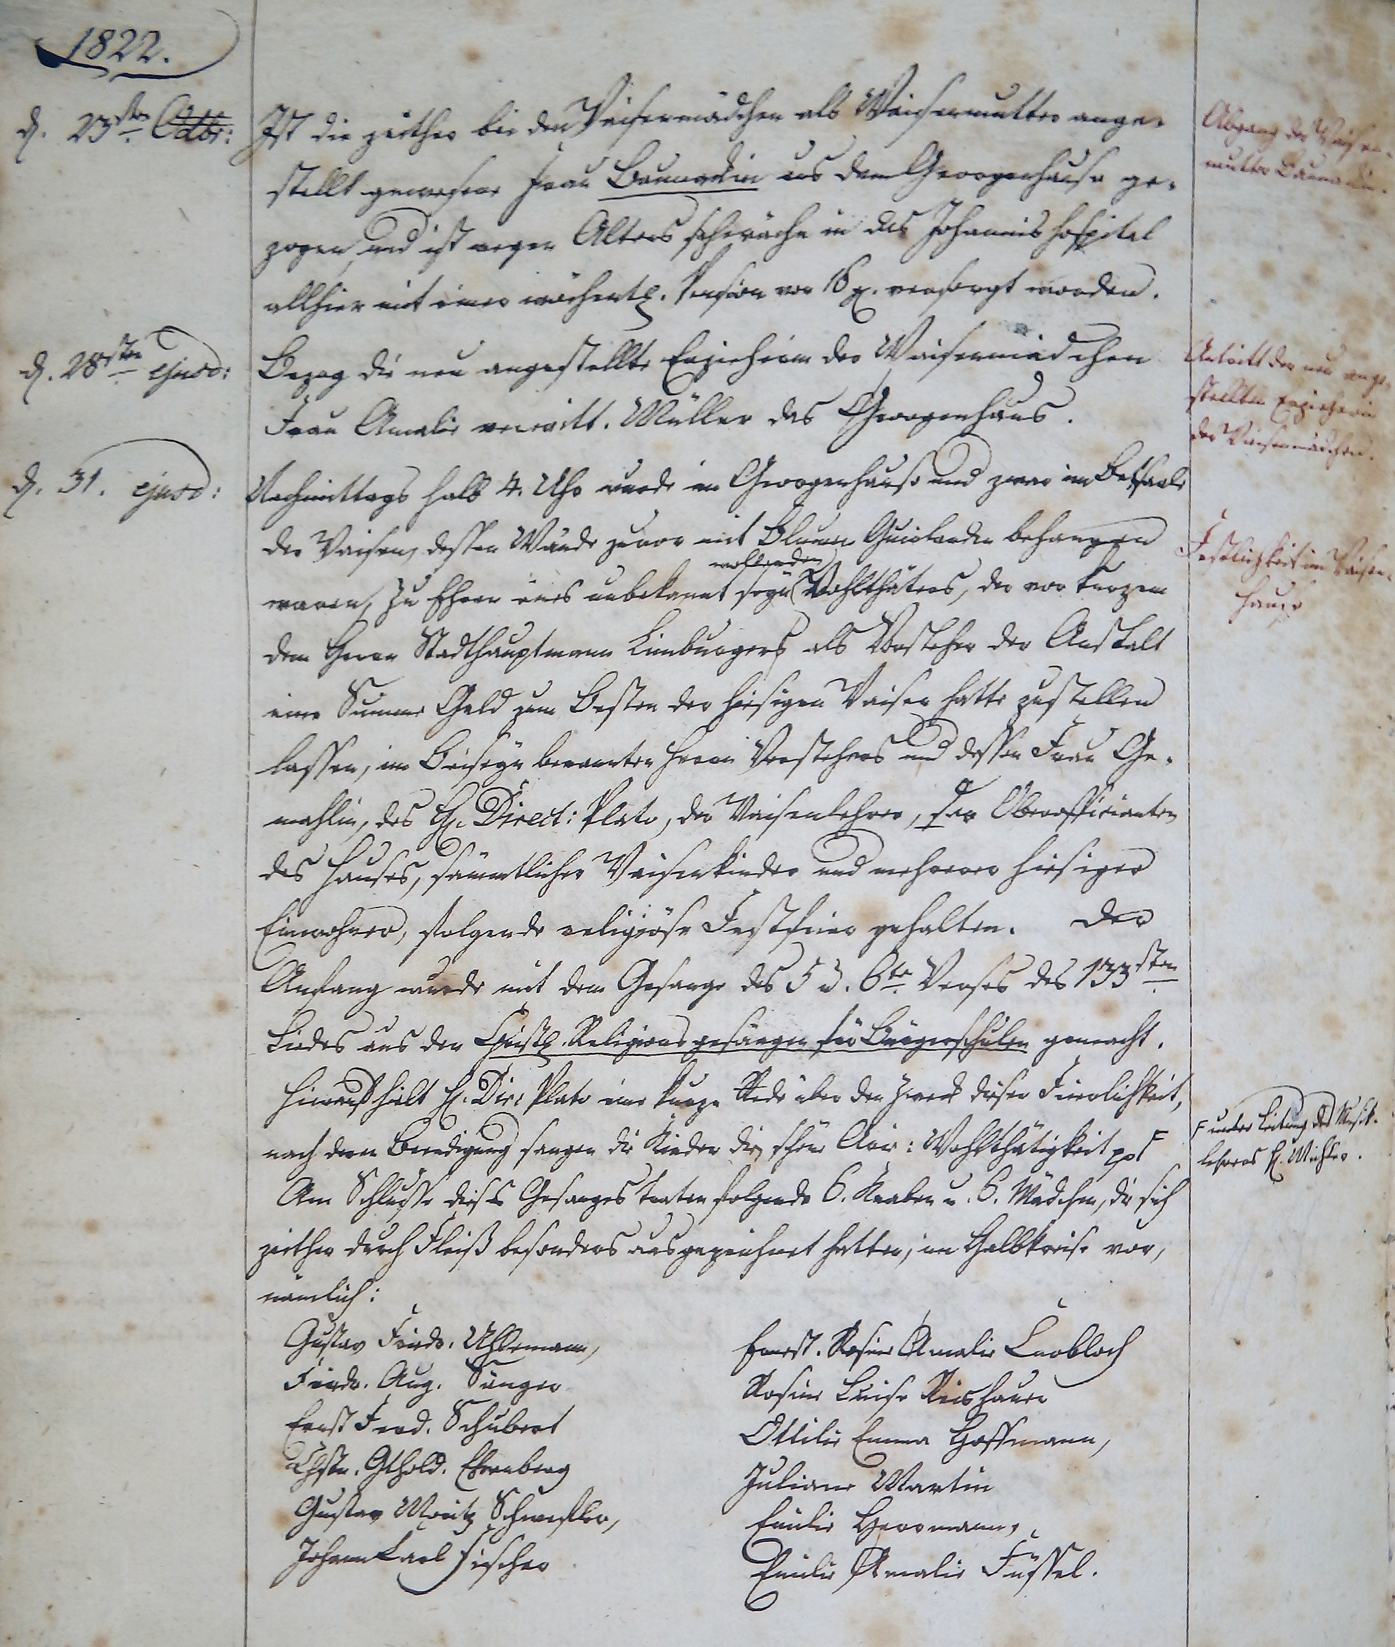 1822.
d. 23sten Octbr:
Ist die zeither bei den Waisenmädchen als Waisenmutter ange-
stellt gewesene Frau Baumann aus dem Georgenhause ge-
zogen, und ist wegen Altersschwäche in das Johannishospital
allhier mit einer wöchentl. Pension von 16 g. versorgt worden.
Abgang der Waisen-
mutter
d. 28sten ejusd:
Bezog die neu angestellte Erzieherin der Waisenmädchen
Frau Amalie verwitt. Müller das Georgenhaus.
Antritt der neu ange-
stellten Erzieherin
der Waisenmädchen.
d. 31. ejusd:
Nachmittags halb 4. Uhr wurde im Georgenhause und zwar im Betsaale
der Waisen, dessen Wände zuvor mit Blumen Guirlanden behangen
waren, zu Ehren eines unbekannt seyn wollenden Wohlthäters, der vor kurzem
dem Herrn Stadthauptmann Limburger als Vorsteher der Anstalt
eine Summe Geld zum Besten der hiesigen Waisen hatte zustellen
lassen, im Beiseyn benannten Herrn Vorstehers und dessen Frau Ge-
mahlin, des H. Direct: Plato, der Waisenlehrer, der Oberofficianten
des Hauses, sämmtlicher Waisenkinder und mehrerer hiesiger
Einwohner, folgende religiöse Festfeier gehalten. Der
Anfang wurde mit dem Gesange des 5 u. 6ten Verses des 133sten
Liedes aus den Christl. Religionsgesängen für Bürgerschulen gemacht.
Festlichkeit im Waisen-
hause
Hierauf hielt H. Dir: Plato eine kurze Rede über den Zweck dieser Feierlichkeit,
nach deren Beendigung sangen die Kinder die schöne Arie: Wohlthätigkeit pp F
F unter Leitung des Musik-
lehrers H.
Am Schlusse dieses Gesanges traten folgende 6. Knaben u. 6. Mädchen, die sich
zeither durch Fleiß besonders ausgezeichnet hatten, im Halbkreise vor,
nämlich:
Gustav Friedr. Uhlemann,
Friedr. Aug. Sänger
Ernst Ferd. Schubert
Chstn. Gthold. Ehrenberg
Gustav Moritz Schweßler,
Johann Karl Fischer
Ernest. Rosine Amalie Knobloch
Rosine Luise Reishauer
Ottilie Emma Hoffmann,
Juliane Martin
Emilie Herrmann,
Emilie Amalie Füssel.